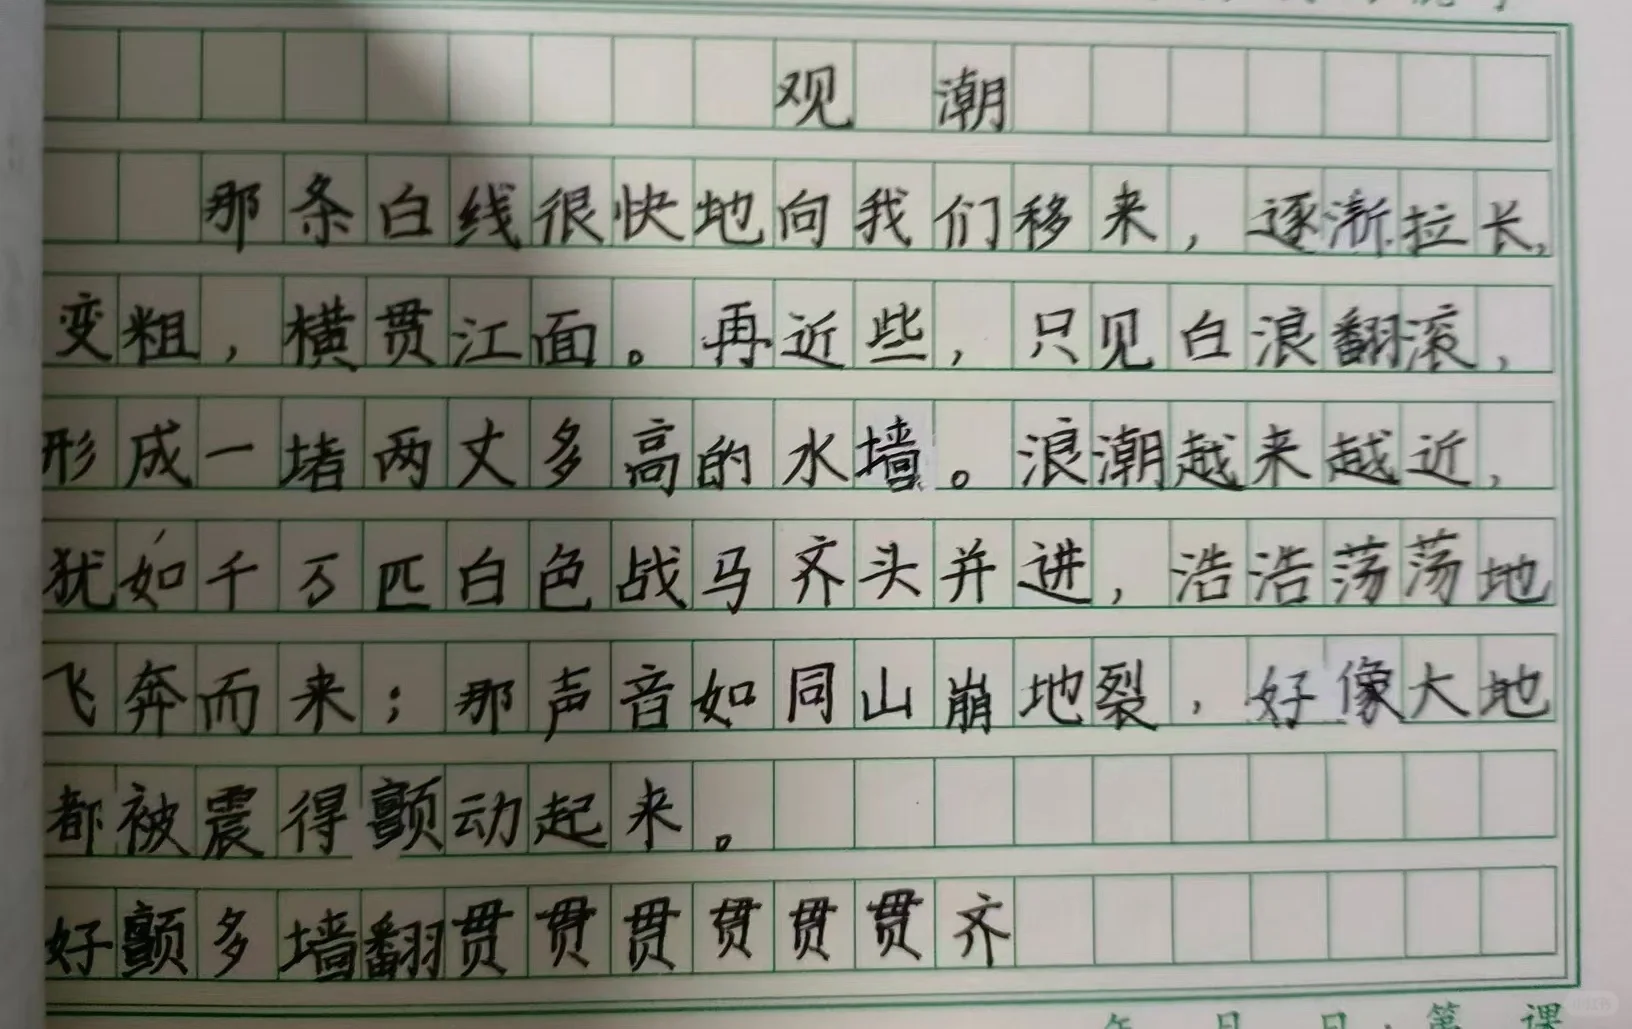 观潮
那条白线很快地向我们移来，逐渐拉长，
变粗，横贯江面。再近些，只见白浪翻滚，
形成一堵两丈多高的水墙。浪潮越来越近，
犹如千万匹白色战马齐头并进，浩浩荡荡地
飞奔而来；那声音如同山崩地裂，好像大地
都被震得颤动起来。
好颤多墙翻贯贯贯贯贯贯齐
年 月 日 第 课